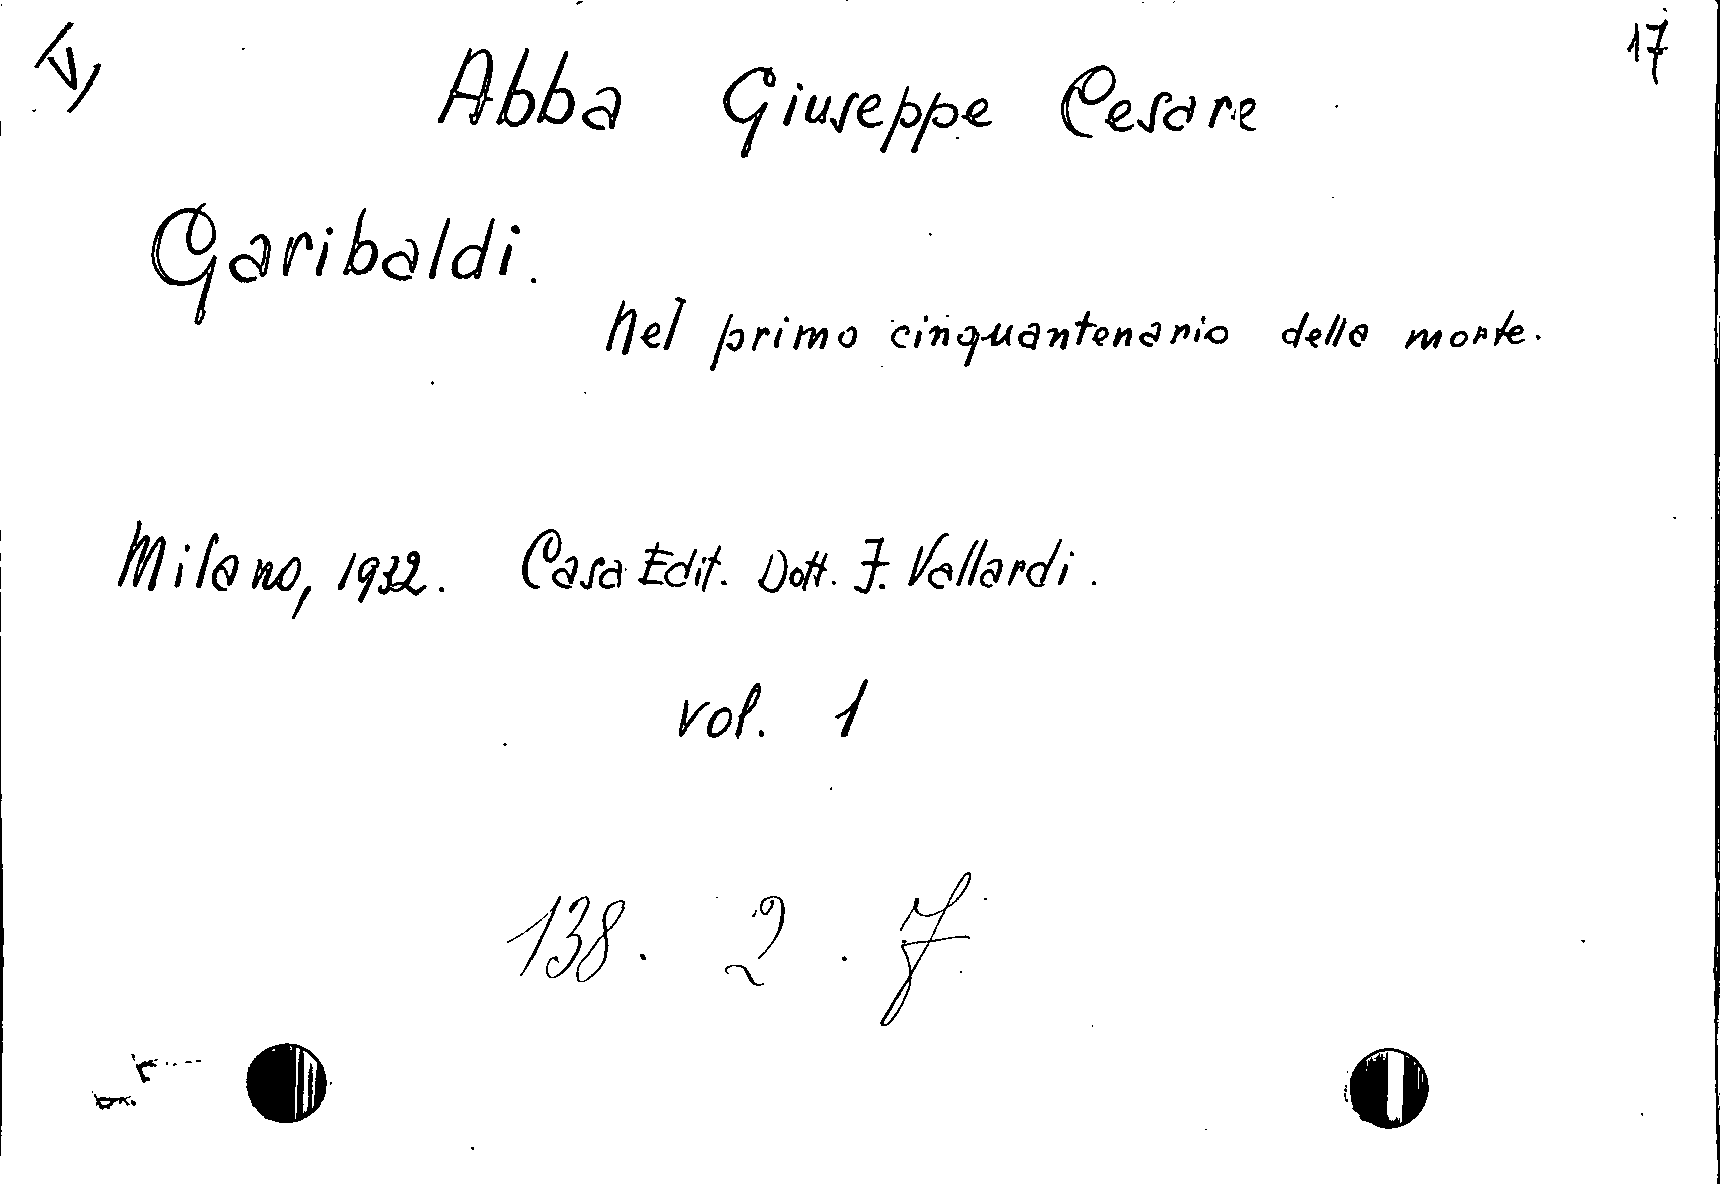 17
Abba Giuseppe Cesare
Garibaldi.
Nel primo cinquantenario della morte.
Milano, 1932. Casa Edit. Dott. F. Vallardi.
vol. 1
138. 2. 7